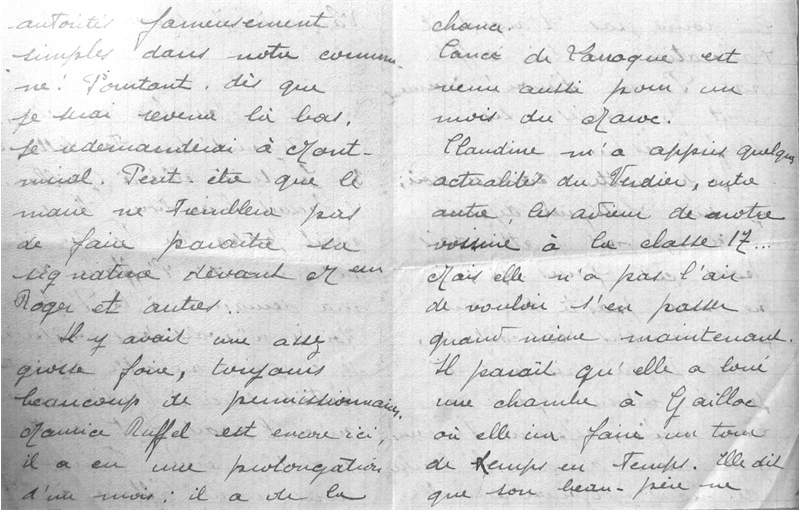 autorités fameusement
simples dans notre commu-
ne! Pourtant, dès que
je serai revenu là bas,
je redemanderai à Mont-
miral. Peut-être que le
maire ne tremblera pas
de faire paraître sa
signature devant Mem
Roger et autres..
Il y avait une assez
grosse foire, toujours
beaucoup de permissionnaires.
Maurice Ruffel est encore ici,
il a eu une prolongation
d'un mois; il a de la
chance.
de Larroque est
venu aussi pour un
mois du Maroc.
Claudine m'a appris quelques
actualités du Verdier, entre
autre les adieux de notre
voisine à la classe 17...
Mais elle n'a pas l'air
de vouloir s'en passer
quand même maintenant.
Il paraît qu'elle a loué
une chambre à Gaillac
où elle va faire un tour
de temps en temps. Elle dit
que son beau-père ne